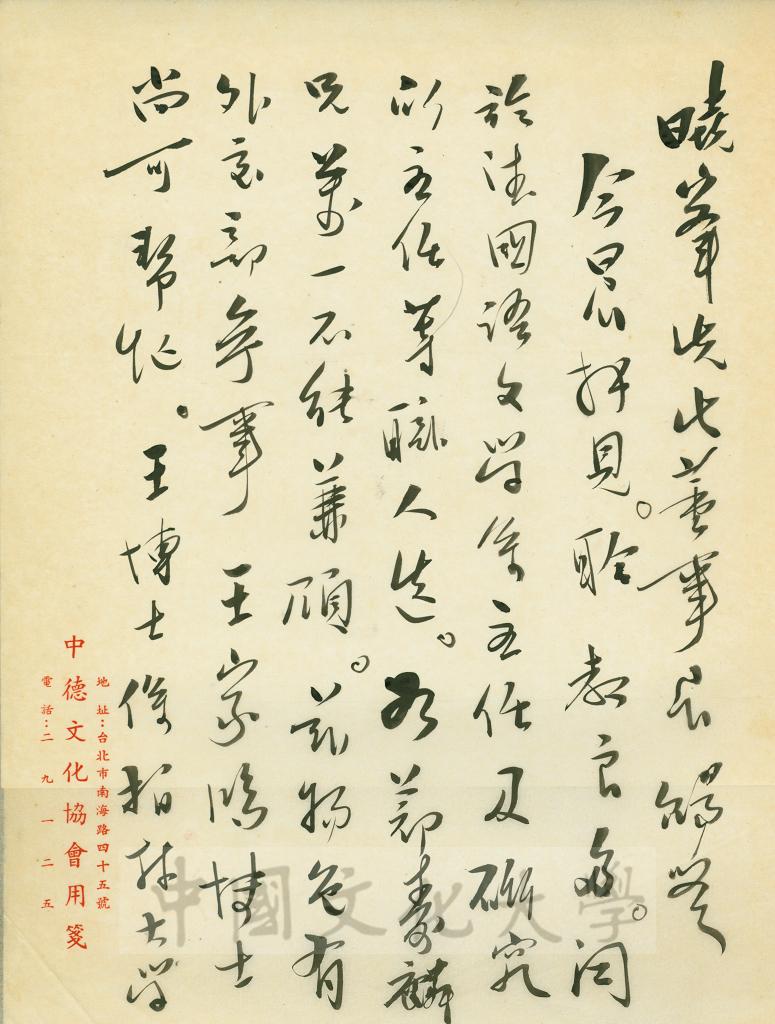 曉峯先生董事長賜鑒
今晨拜見。聆教良多。關
於法國語文學系主任及研究
所主任等職人選。如蕭壽麟
兄萬一不能兼顧。茲物色有
外交部參事王家鴻博士
尚可幫忙。王博士係柏林大學
中德文化協會用箋
地址：台北市南海路四十五號
電話：二九一二五
中國文化大學